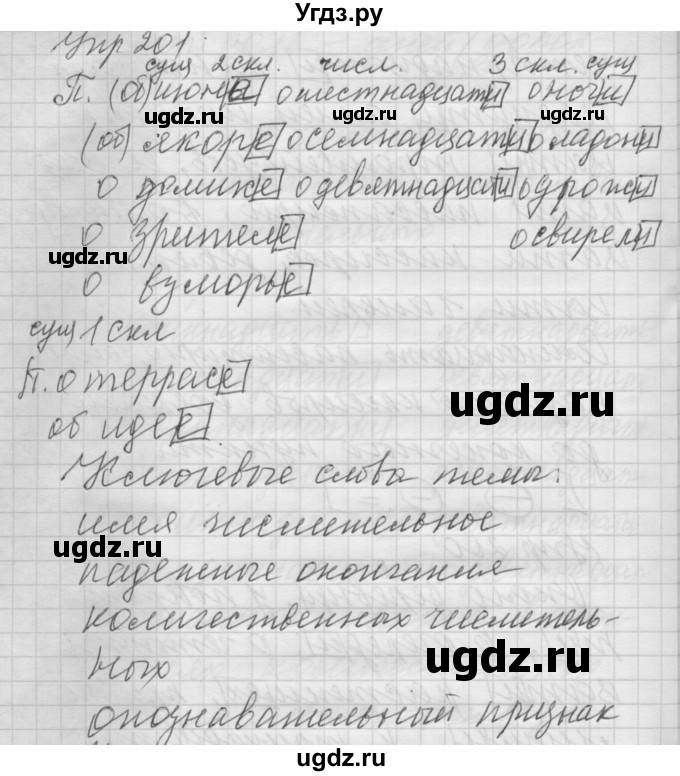 Угдз.ру
Упр 201.
сущ 2 скл. числ. 3 скл. сущ
П. (об) о шестнадцати о ночи
ugdz.ru ugdz.ru
(об) якоре о семнадцати о ладони
о домике о девятнадцати о дрожи
о зрителе о свирели
ugdz.ru ugdz.ru
о
сущ 1 скл
П. о террасе
ugdz.ru
об идее
Ключевые слова темы:
имя числительное
ugdz.ru
падежные окончания
количественных числитель-
ных
ugdz.ru
опознавательный признак
ugdz.ru